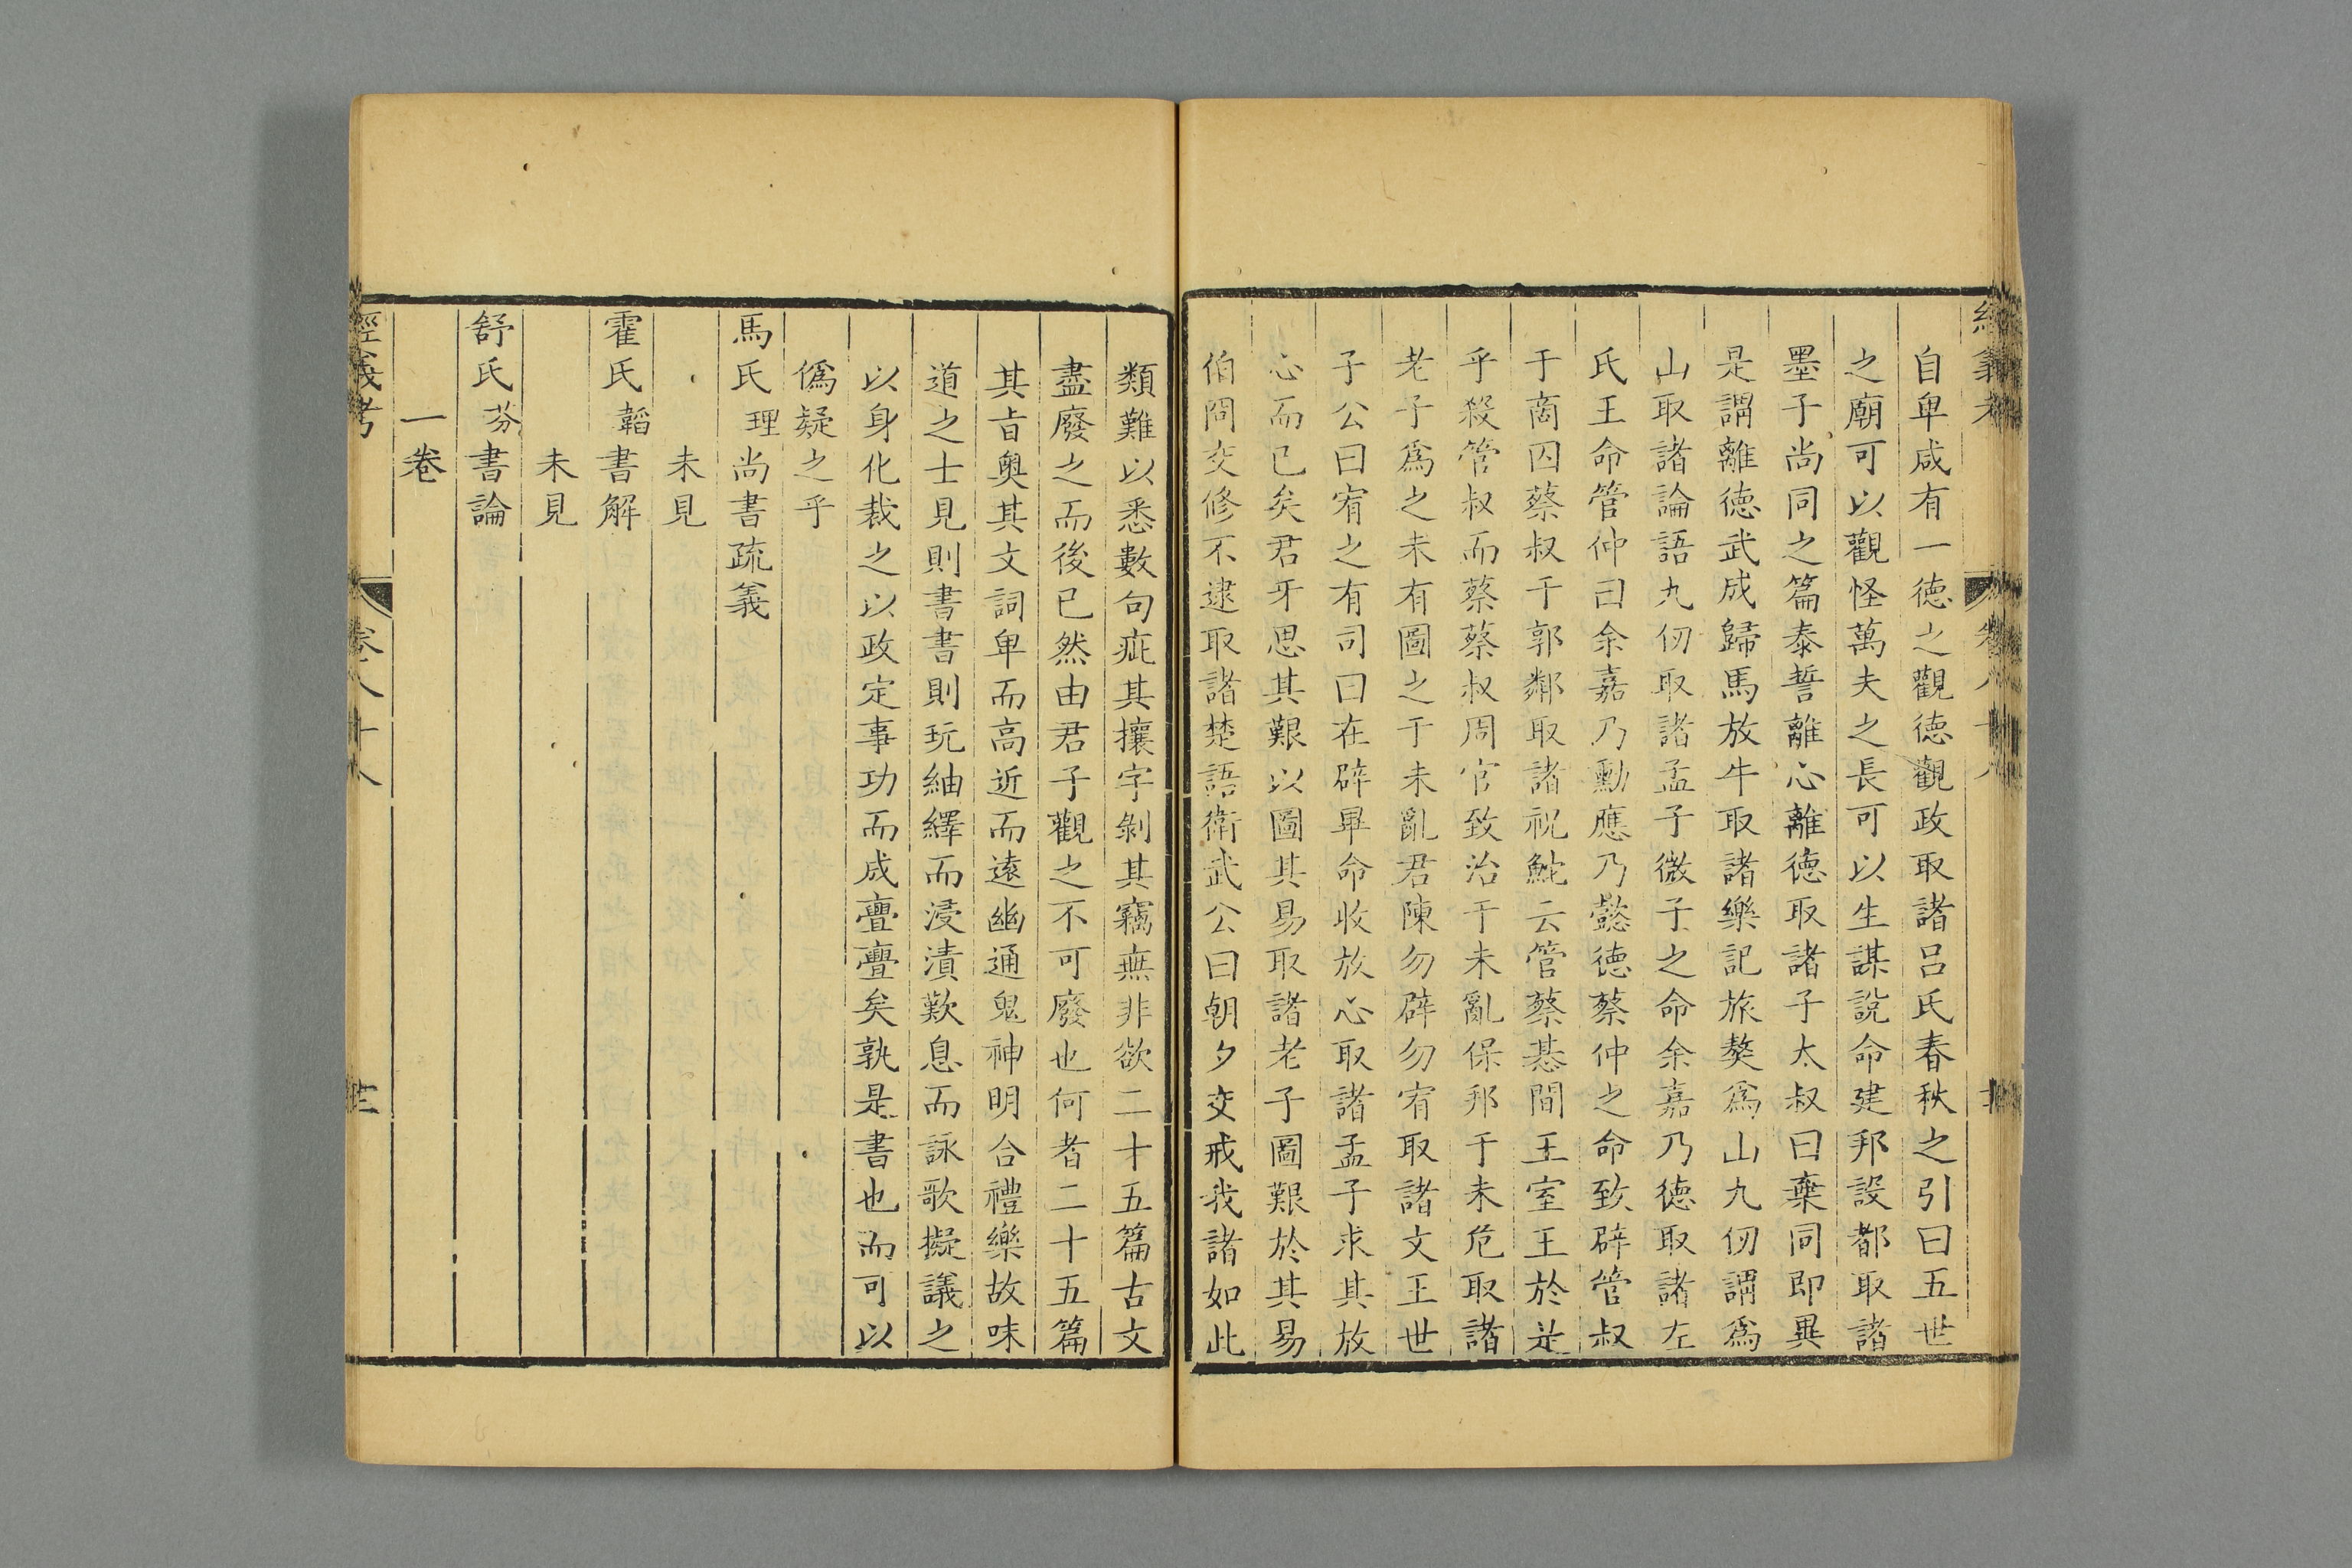 自卑咸有一德之觀德觀政取諸呂氏春秋之引曰五世
之廟可以觀怪萬夫之長可以生謀說命建邦設都取諸
墨子尚同之篇泰誓離心離德取諸子太叔曰棄同即異
是謂離德武成歸馬放牛取諸樂記旅獒爲山九仞謂爲
山取諸論語九仞取諸孟子微子之命余嘉乃德取諸左
氏王命管仲曰余嘉乃勳應乃懿德蔡仲之命致辟管叔
于商囚蔡叔于郭鄰取諸祝鮀云管蔡惎間王室王於是
乎殺管叔而蔡蔡叔周官致治于未亂保邦于未危取諸
老子爲之未有圖之于未亂君陳勿辟勿宥取諸文王世
子公曰宥之有司曰在辟畢命收放心取諸孟子求其放
心而已矣君牙思其艱以圖其易取諸老子圖艱於其易
伯冏交修不逮取諸楚語衛武公曰朝夕交戒我諸如此
類難以悉數句疵其攘字剝其竊無非欲二十五篇古文
盡廢之而後已然由君子觀之不可廢也何者二十五篇
其旨奧其文詞卑而高近而遠幽通鬼神明合禮樂故味
道之士見則書書則玩紬繹而浸漬歎息而詠歌擬議之
以身化裁之以政定事功而成亹亹矣孰是書也而可以
僞疑之乎
馬氏理尚書疏義
未見
霍氏韜書解
未見
舒氏芬書論
一卷
經義考 卷八十八